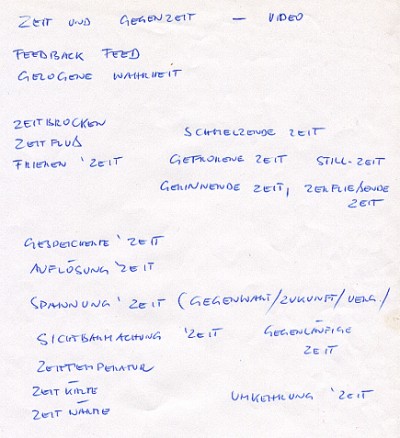 ZEIT UND GEGENZEIT — VIDEO
FEEDBACK FEED
GELOGENE WAHRHEIT
ZEITBROCKEN
SCHMELZENDE ZEIT
ZEITFLUß
FRIEREN 'ZEIT GEFRORENE ZEIT STILL-ZEIT
GERINNENDE ZEIT, ZERFLIEßENDE
ZEIT
GESPEICHERTE 'ZEIT
AUFLÖSUNG 'ZEIT
SPANNUNG 'ZEIT (GEGENWART/ZUKUNFT/VERG./
SICHTBARMACHUNG 'ZEIT GEGENLÄUFIGE
ZEIT
ZEITTEMPERATUR
ZEIT KÄLTE
UMKEHRUNG 'ZEIT
ZEIT WÄRME